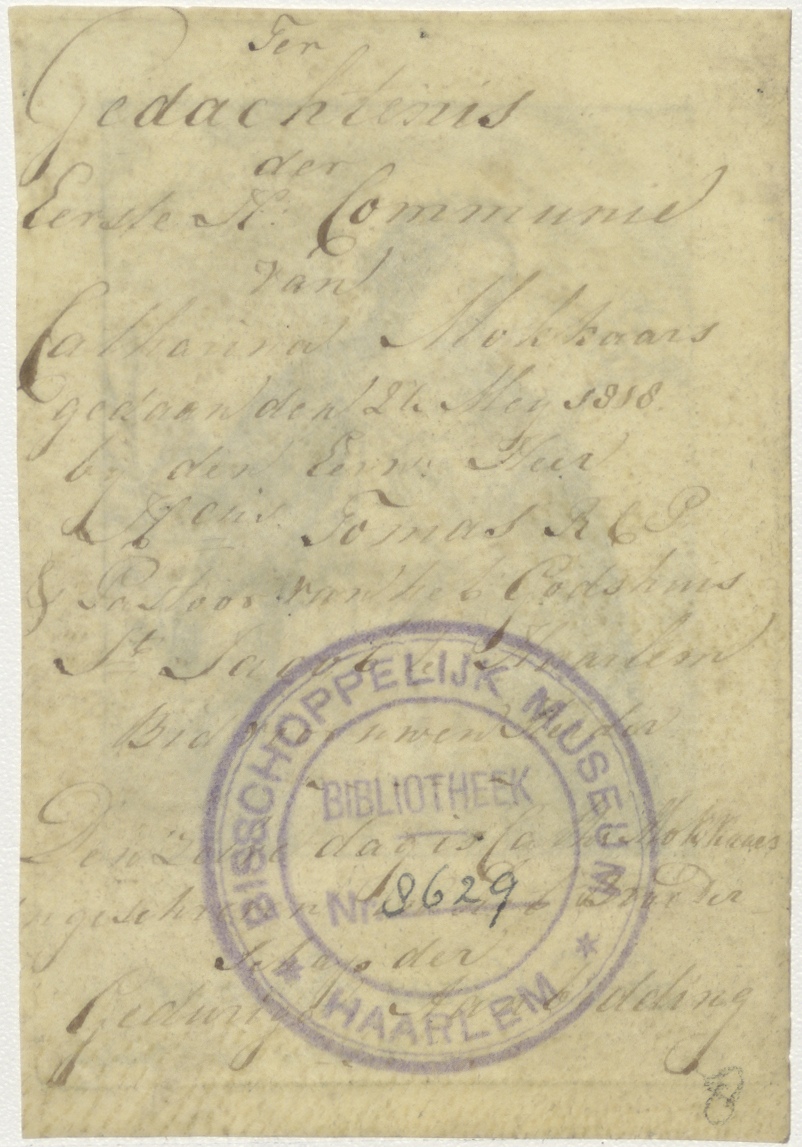 Ter
Gedachtenis
der
Eerste H: Communie
van
Catharina Mokkaars
gedaan den 26 Mey 1818.
by den Eerw: Heer
Tomas R C P
Pastoor van het Godshuis
St Jacob te Haarlem
Bid voor uwen
Den zelve dag is Cath: Mokkaars
ingeschreven Broeder
schap der
Gedurige Aanbidding
BISSCHOPPELIJK MUSEUM
* HAARLEM *
BIBLIOTHEEK
Nr. 8629
8